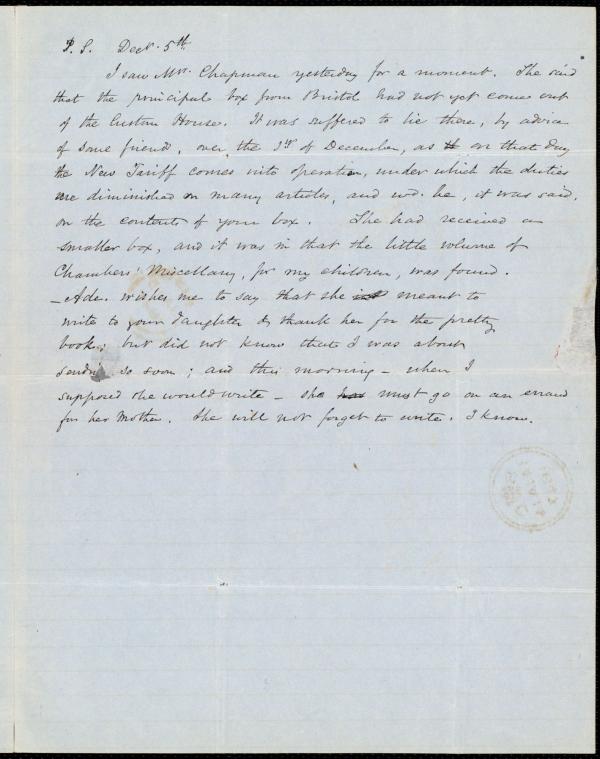 P.S. Decr. 5th.
I saw Mrs. Chapman yesterday for a moment. She said
that the principal box from Bristol had not yet come out
of the Custom House. It was suffered to lie there, by advice
of some friend, over the 1st of December, as on that day
the New Tariff comes into operation, under which the duties
are diminished on many articles, and wd. be, it was said,
on the contents of your box. She had received a
smaller box, and it was in that the little volume of
Chambers' Miscellany, for my children, was found.
—Ade. wishes me to say that she meant to
write to your daughter & thank her for the pretty
book; but did not know that I was about
sending so soon; and this morning — when I
supposed she would write — she must go on an errand
for her mother. She will not forget to write, I know.